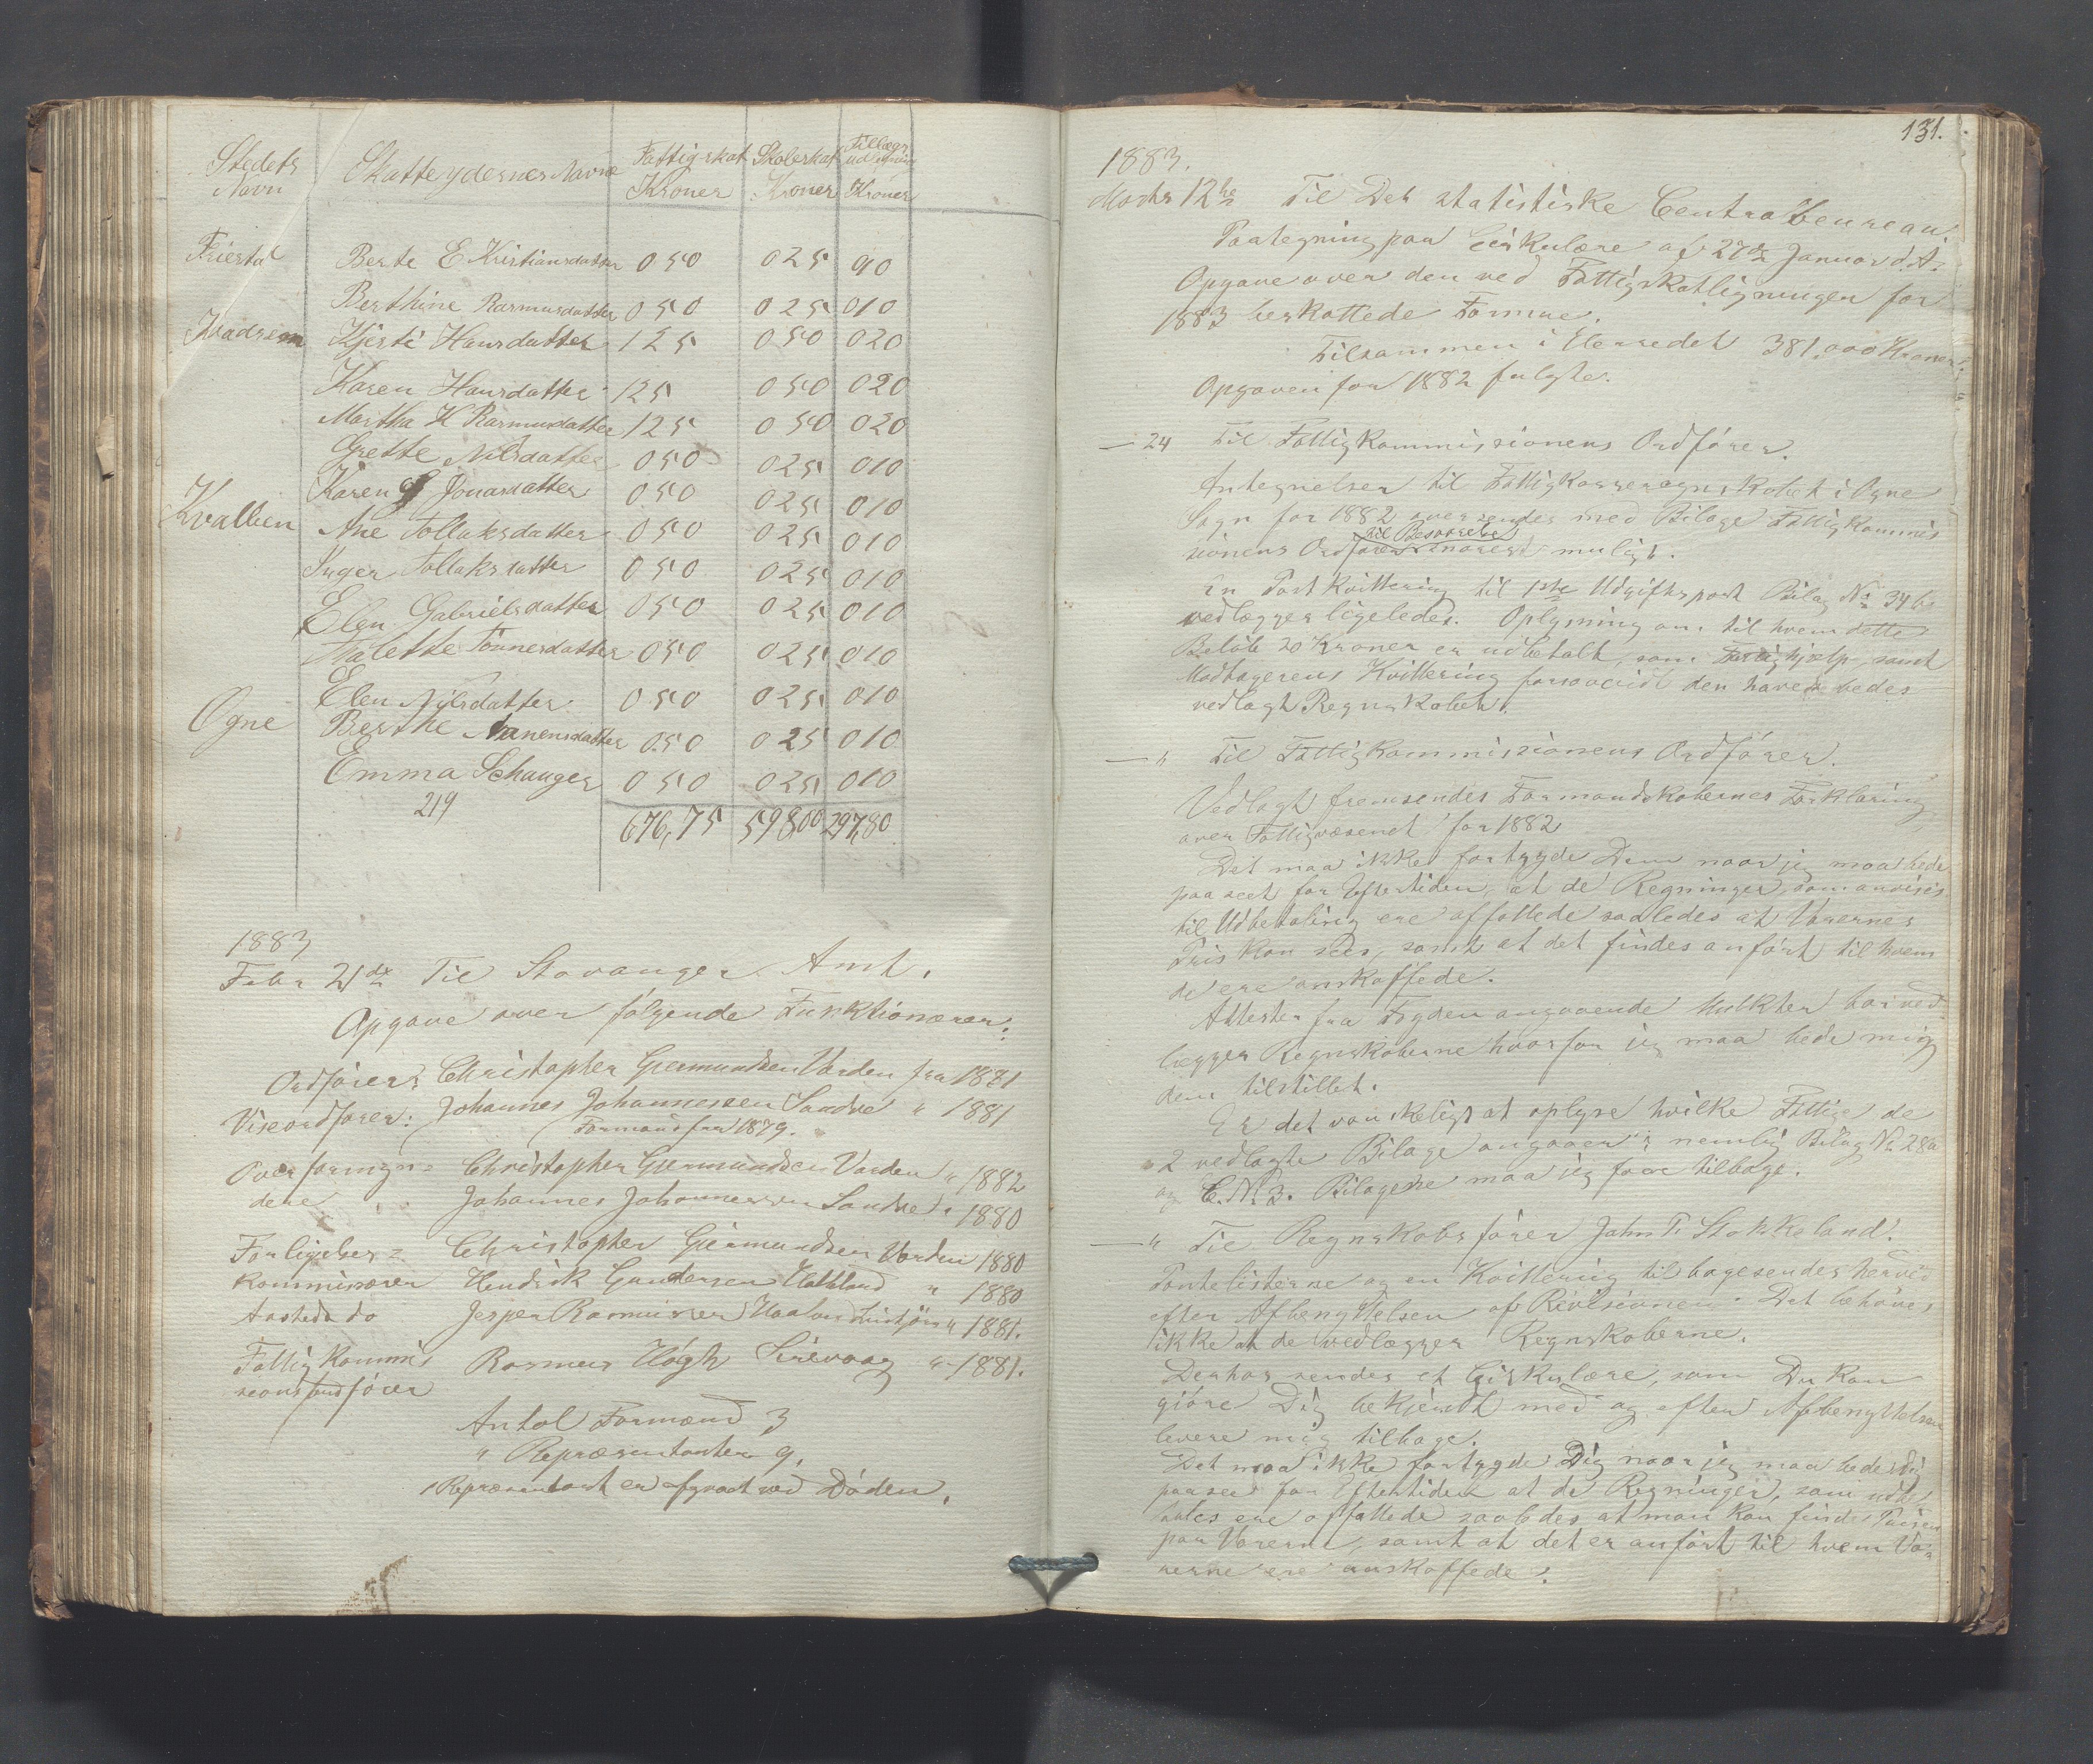 Stedets Navn | Skatteydernes Navne | Fattigskat Kroner | Skoleskat Kroner | Tillægs udligning Kroner
Friestad Berte E Kristiansdatter 0 50 0 25 90
Berthine Rasmusdatter 0 50 0 25 0 10
Kvadsem Kjersti Hansdatter 1 25 0 50 0 20
Karen Hansdatter 1 25 0 50 0 20
Martha H Rasmusdatter 1 25 0 50 0 20
Grette Nilsdatter 0 50 0 25 0 10
Karen G Jonasdatter 0 50 0 25 0 10
Kvalbein Ane Tollaksdatter 0 50 0 25 0 10
Inger Tollaksdatter 0 50 0 25 0 10
Elen Gabrielsdatter 0 50 0 25 0 10
Malethe Tønnesdatter 0 50 0 25 0 10
Elen Nilsdatter 0 50 0 25 0 10
Ogne Berthe Nanensdatter 0 50 0 25 0 10
Emma Schanger 0 50 0 25 0 10
219
676,75 598,00 297,80
1883
Febr 21de Til Stavanger Amt.
Opgave over følgende Funktionærer:
Ordfører: Christopher Giermundsen Varden fra 1871
Viseordfører: Johannes Johannessen Sandve " 1881
Formand fra 1879.
Overformyn= Christopher Giermundsen Varden " 1882
dere Johannes Johannessen Sandve " 1880
Forligelses= Christopher Giermundsen Varden 1880
kommissærer Hendrik Gundersen Hatteland " 1880
Aasteds do Jesper Rasmussen 1881.
Fattigkommis Rasmus Høgh Sirevaag " 1881.
sionsordfører
Antal Formænd 3
" Repræsentanter 9.
1 Repræsentant er afgaaet ved Døden.
131.
1883.
Marts 12te Til Det statistiske Centralbeureau.
Paategning paa Cirkulære af 27de Januar d.A.
Opgave over den ved Fattigskatligningen for
1883 beskattede Formue.
Tilsammen i Herredet 381,000 Kroner.
Opgaven for 1882 fulgte.
— 24 Til Fattigkommissionens Ordfører.
Antegnelser til Fattigkasseregnskabet i Ogne
Sogn for 1882 oversendes med Bilage Fattigkommis
til Besvarelse
sionens Ordfører snarest muligt.
En Postkvittering til 1ste Udgiftspost Bilag No 34 b
vedlægges ligeledes. Oplysning om til hvem dette
Beløb 20 Kroner er udbetalt, som Fattighjelp, samt
Modtagerens Kvittering forsaavidt den haves bedes
vedlagt Regnskabet.
— " Til Fattigkommissionens Ordfører.
Vedlagt fremsendes Formandskabernes Forklaring
over Fattigvæsenet for 1882
Det maa ikke fortryde Dem naar jeg maa bede
paaseet for Eftertiden, at de Regninger, som anvises
til Udbetaling ere affattede saaledes at Varernes
Pris kan sees, samt at det findes anført til hvem
de ere anskaffede.
Attester fra Fogden angaaende Mulkter bør ved
lægges Regnskaberne hvorfor jeg maa bede mig
dem tilstillet.
Er det vanskeligt at oplyse hvilke Fattige de
2 vedlagte Bilage angaaer, nemlig Bilag No 28a
og C. No 3. Bilagene maa jeg faae tilbage.
— " Til Regnskabsfører John T. Stokkeland.
Pantelisterne og en Kvittering tilbagesendes herved
efter Afbenyttelsen af Revisionen. Det behøves
ikke at de vedlægges Regnskaberne.
Derhos sendes et Cirkulære, som Du kan
gjøre Dig bekjendt med og efter Afbenyttelsen
levere mig tilbage.
Det maa ikke fortryde Dig naar jeg maa bede Dig
paasee for Eftertiden at de Regninger, som udbe
tales ere affattede saaledes at man kan finde Prisen
paa Varerne, samt at det er anført til hvem Va=
rerne ere anskaffede.